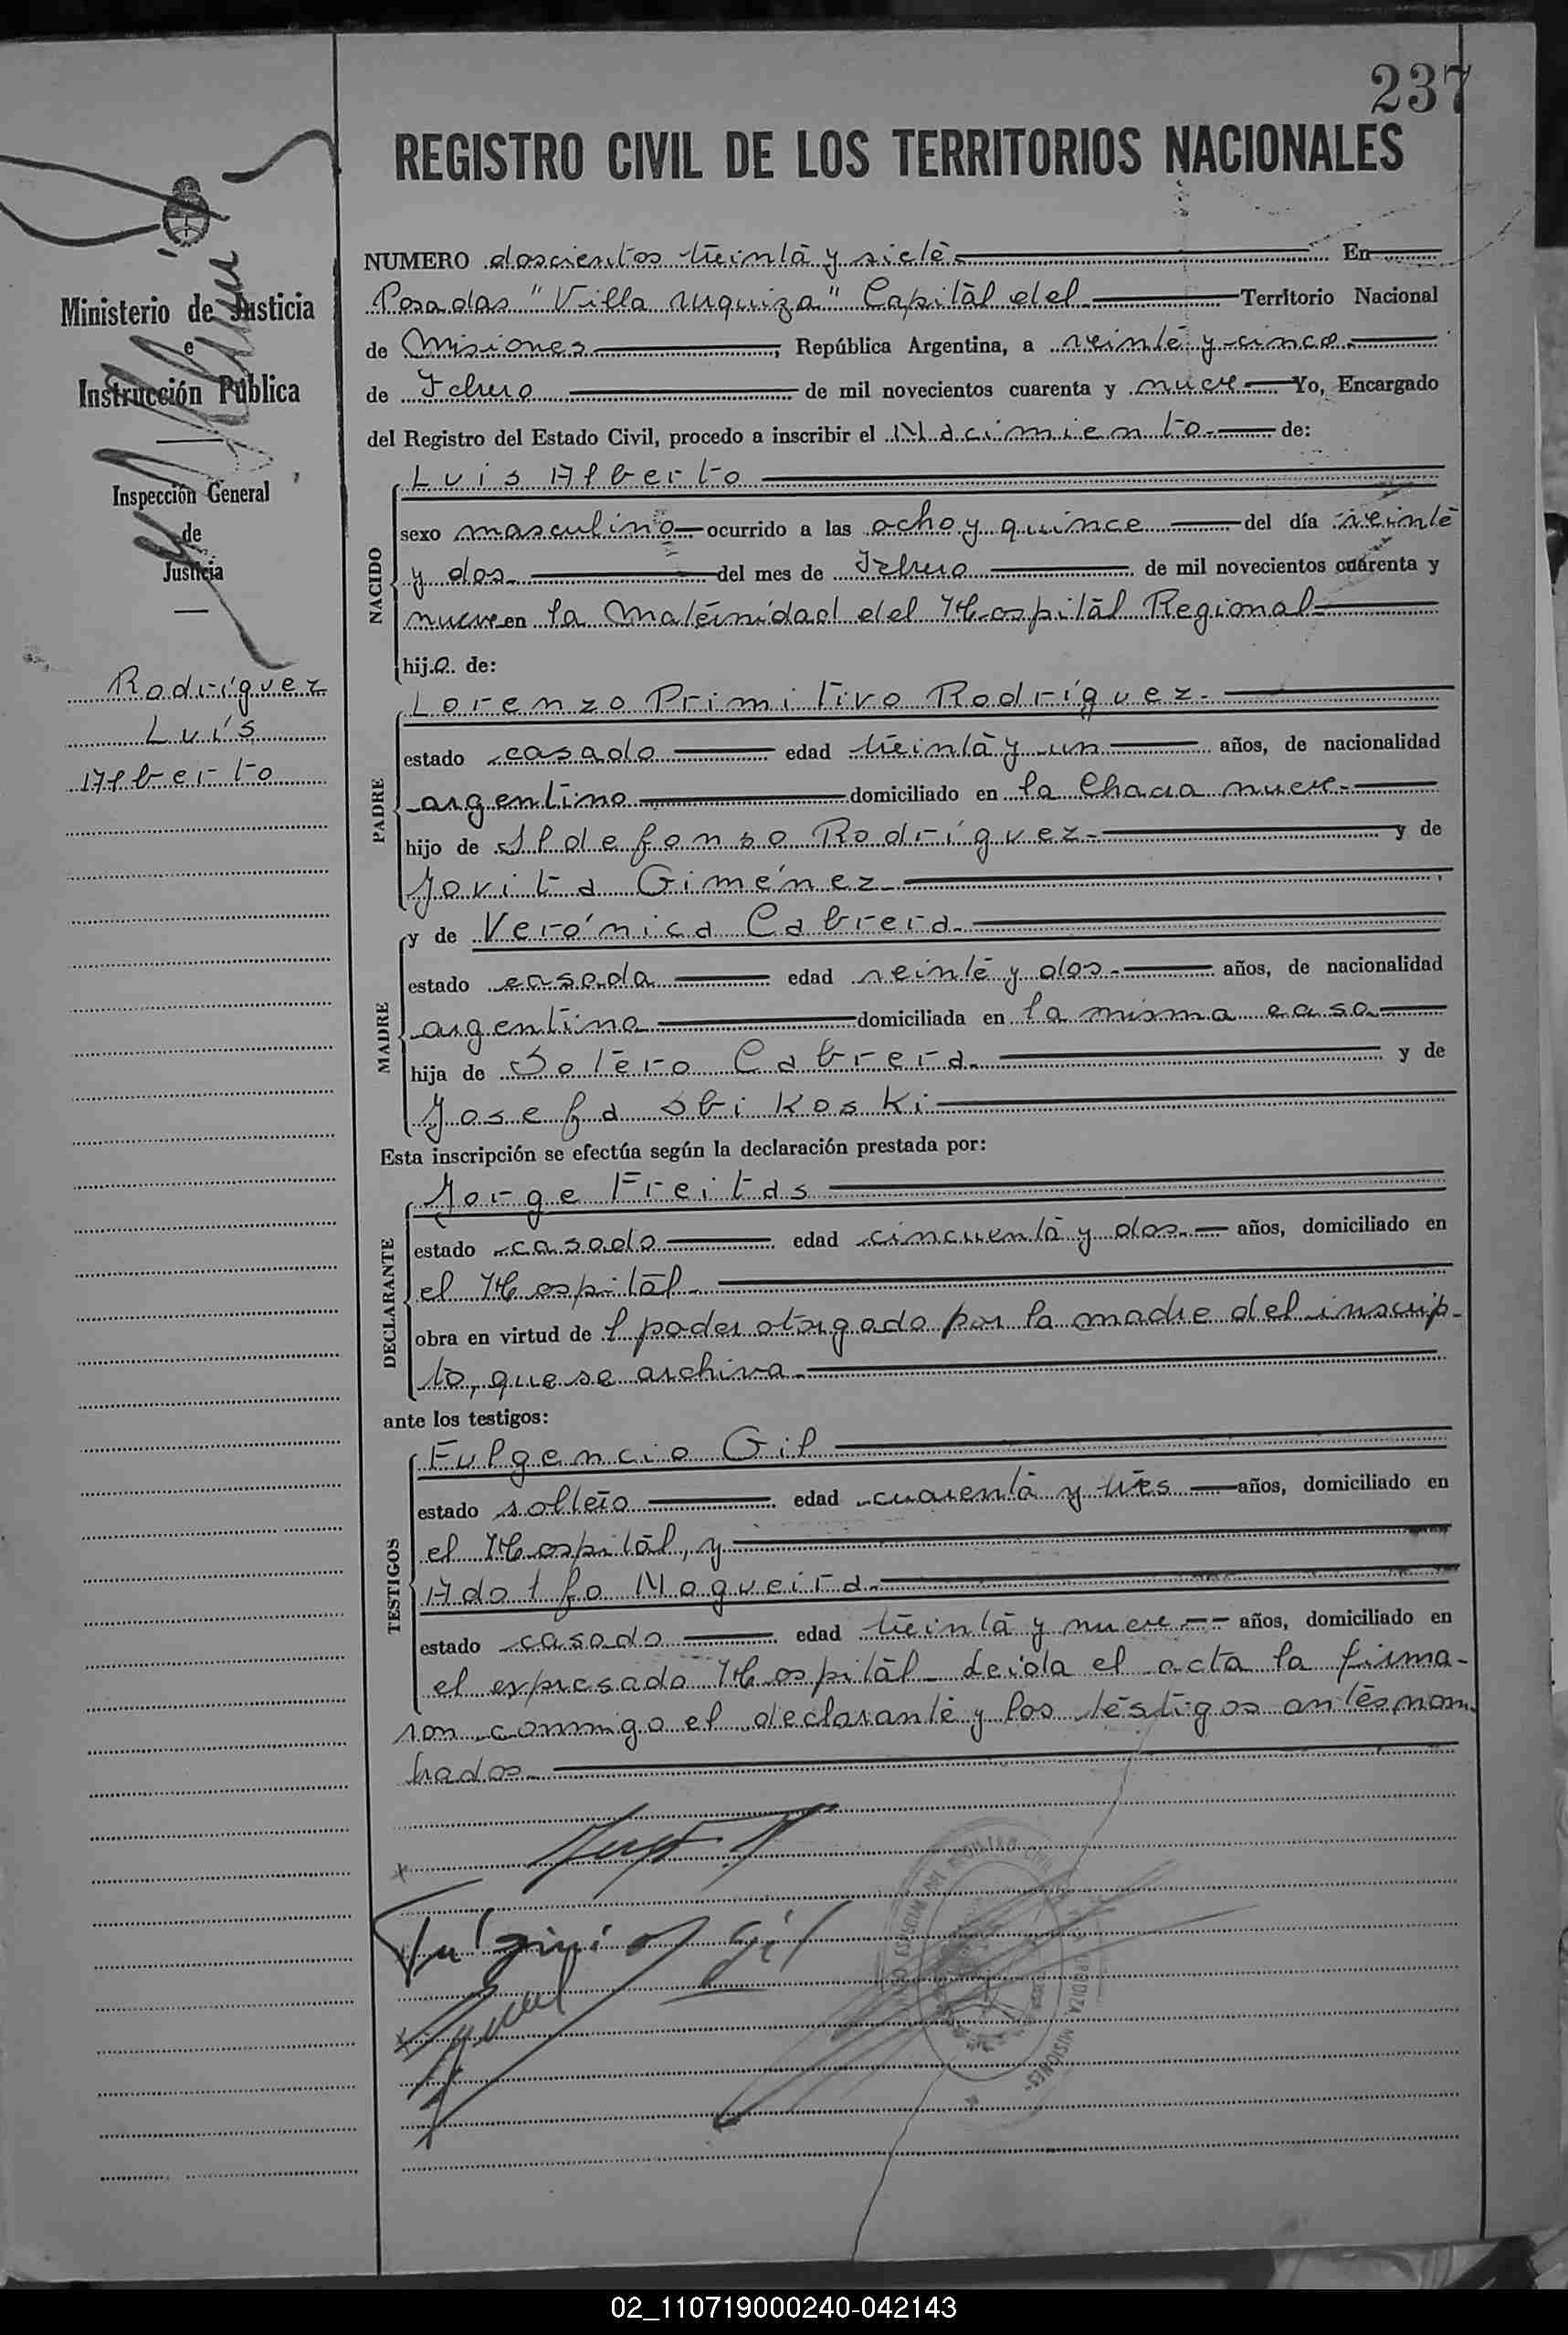 237
REGISTRO CIVIL DE LOS TERRITORIOS NACIONALES
Ministerio de Justicia
e
Instrucción Pública
Inspección General
de
Justicia
Rodríguez
Luís
Alberto
NUMERO doscientos treinta y siete En
Posadas "Villa Urquiza" Capital del Territorio Nacional
de Misiones, República Argentina, a veinte y cinco
de Febrero de mil novecientos cuarenta y nueve Yo, Encargado
del Registro del Estado Civil, procedo a inscribir el Nacimiento de:
NACIDO
Luis Alberto
sexo masculino ocurrido a las ocho y quince del día veinte
y dos del mes de Febrero de mil novecientos cuarenta y
nueve en la Maternidad del Hospital Regional
hijo de:
PADRE
Lorenzo Primitivo Rodríguez
estado casado edad treinta y un años, de nacionalidad
argentino domiciliado en la Chacra nueve
hijo de Ildefonso Rodríguez y de
Jovita Giménez
MADRE
y de Verónica Cabrera
estado casada edad veinte y dos años, de nacionalidad
argentina domiciliada en la misma casa
hija de Sotero Cabrera y de
Josefa Sbikoski
Esta inscripción se efectúa según la declaración prestada por:
DECLARANTE
Jorge Freitas
estado casado edad cincuenta y dos años, domiciliado en
el Hospital
obra en virtud de l poder otorgado por la madre del inscrip-
to, que se archiva
ante los testigos:
TESTIGOS
Fulgencio Gil
estado soltero edad cuarenta y tres años, domiciliado en
el Hospital, y
Adolfo Nogueira
estado casado edad treinta y nueve años, domiciliado en
el expresado Hospital. Leída el acta la firma-
ron conmigo el declarante y los testigos antes nom-
brados
Gil
MISIONES
02_110719000240-042143